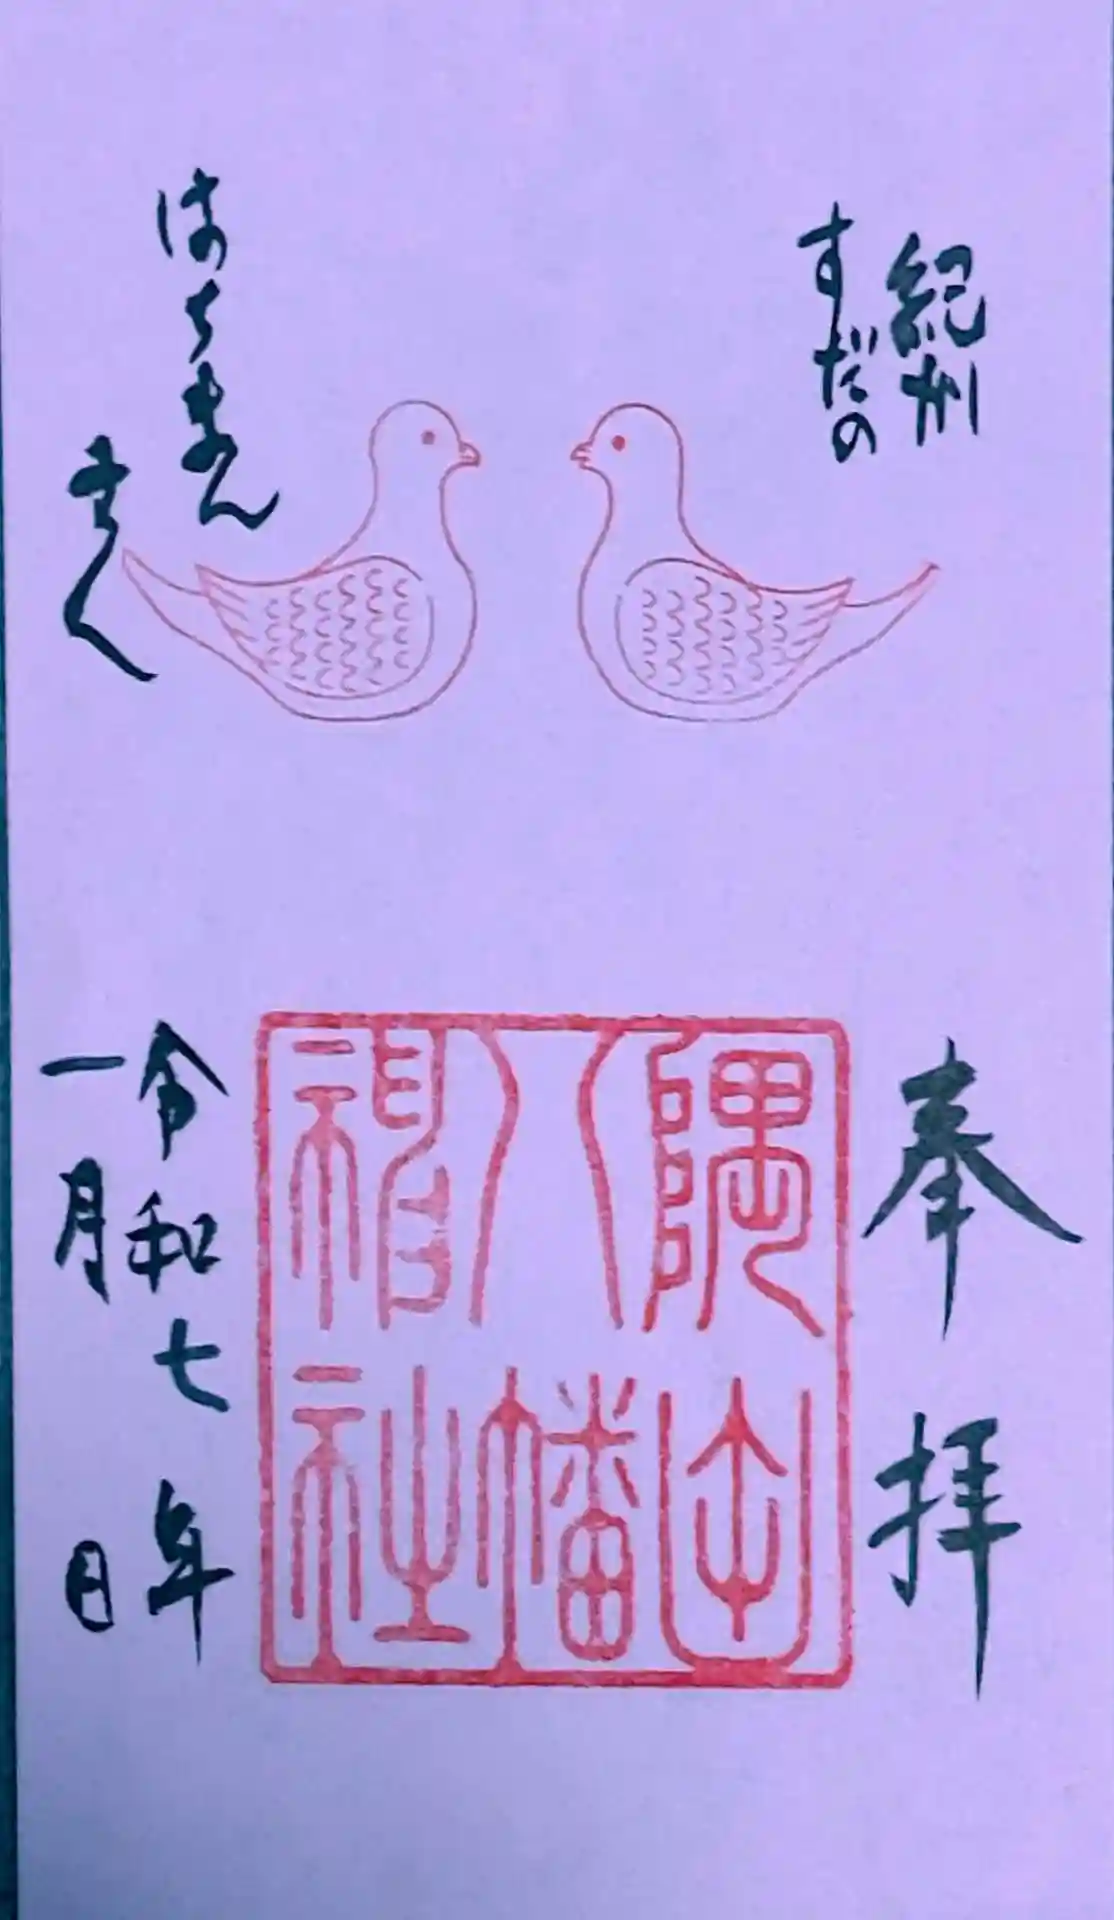 紀州
すだの
はちまん
奉拝
隅田
八幡
神社
令和七年
一月 日